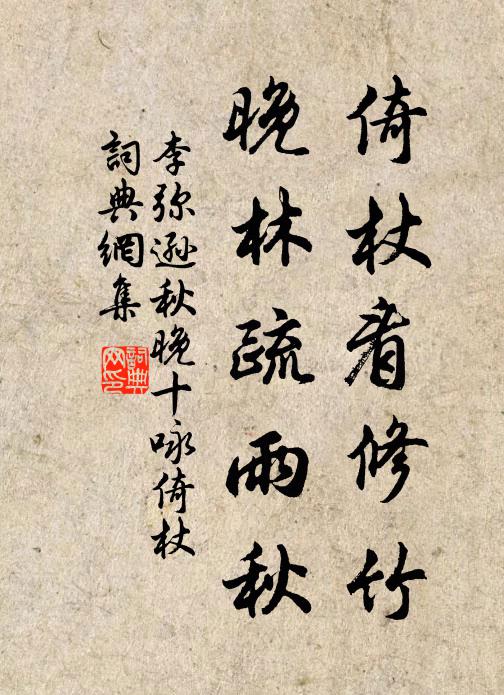 倚杖看修竹
晚林疏雨秋
李弥逊秋晚十咏倚杖
詞典網集
詞典网印